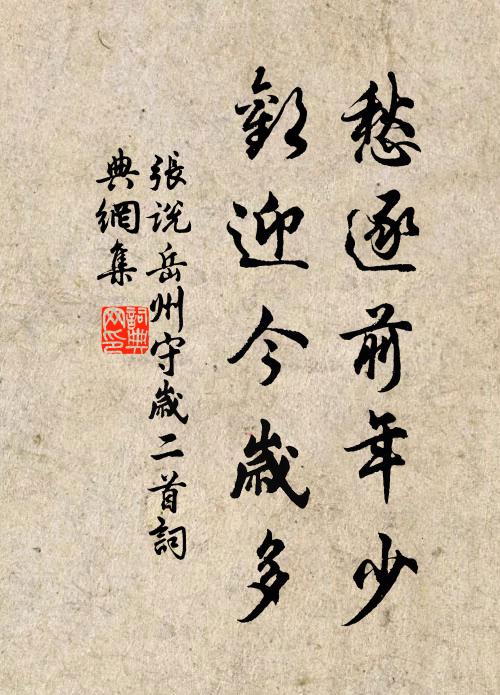 愁逐前年少
歡迎今歲多
張說岳州守歲二首詞
典網集
詞典
网印